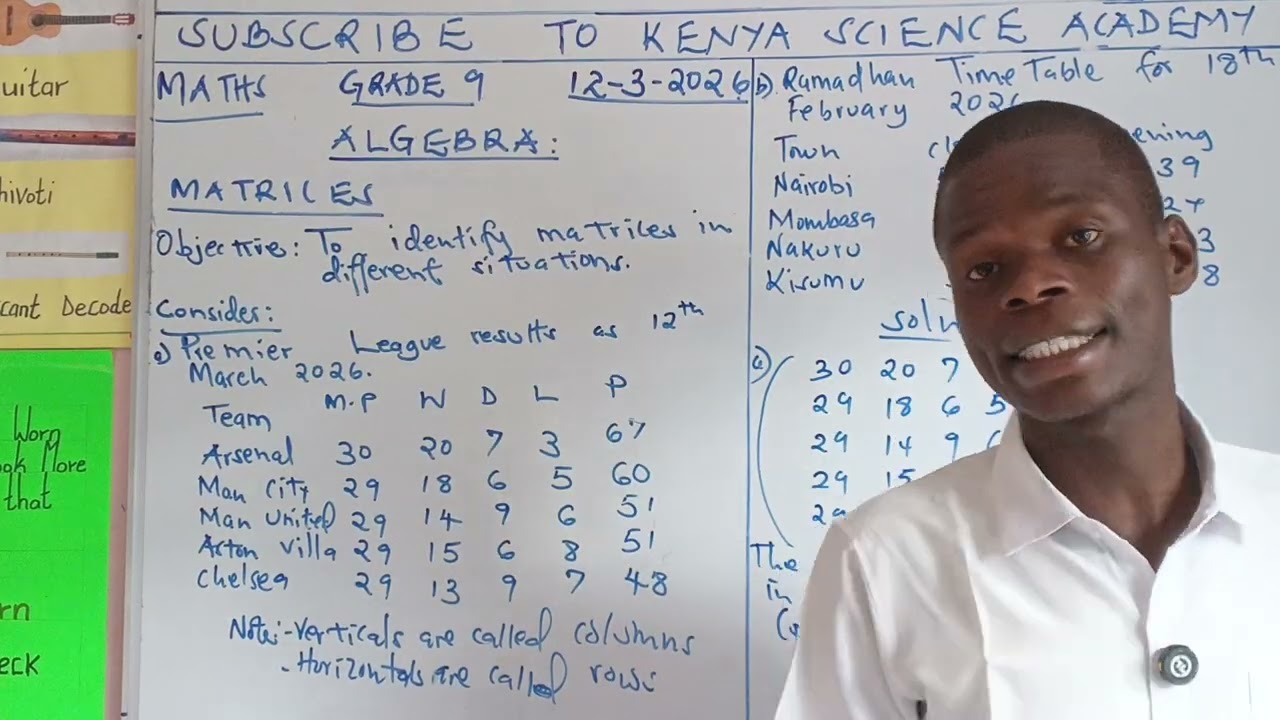 SUBSCRIBE TO KENYA SCIENCE ACADEMY
MATHS GRADE 9 12-3-2026
ALGEBRA:
MATRICES
Objective: To identify matrices in
different situations.
Consider:
a) Premier League results as 12th
March 2026.
Team M.P W D L P
Arsenal 30 20 7 3 67
Man City 29 18 6 5 60
Man United 29 14 9 6 51
Aston Villa 29 15 6 8 51
Chelsea 29 13 9 7 48
Note:-Verticals are called columns
-Horizontals are called rows
b) Ramadhan Time Table for 18th
February 2026
Town
Nairobi 39
Mombasa
Nakuru 3
Kisumu 8
soln
a)
30 20 7
29 18 6 5
29 14 9
29 15
29
The
in
uitar
hivoti
cant Decode
Worn
ok More
that
rn
eck